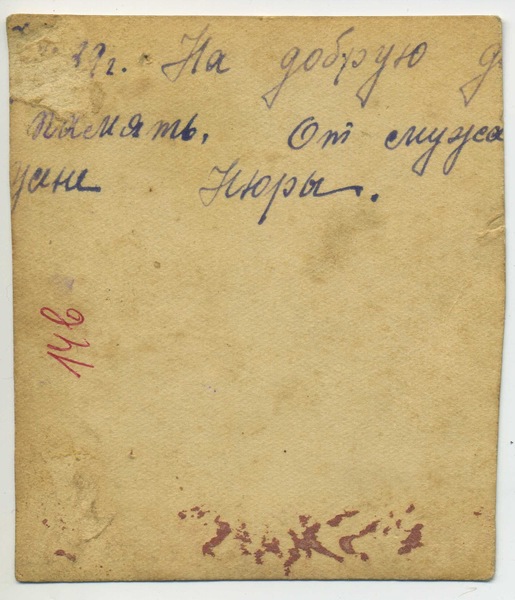 29г. На добрую
память. От мужа
Нюры.
14в